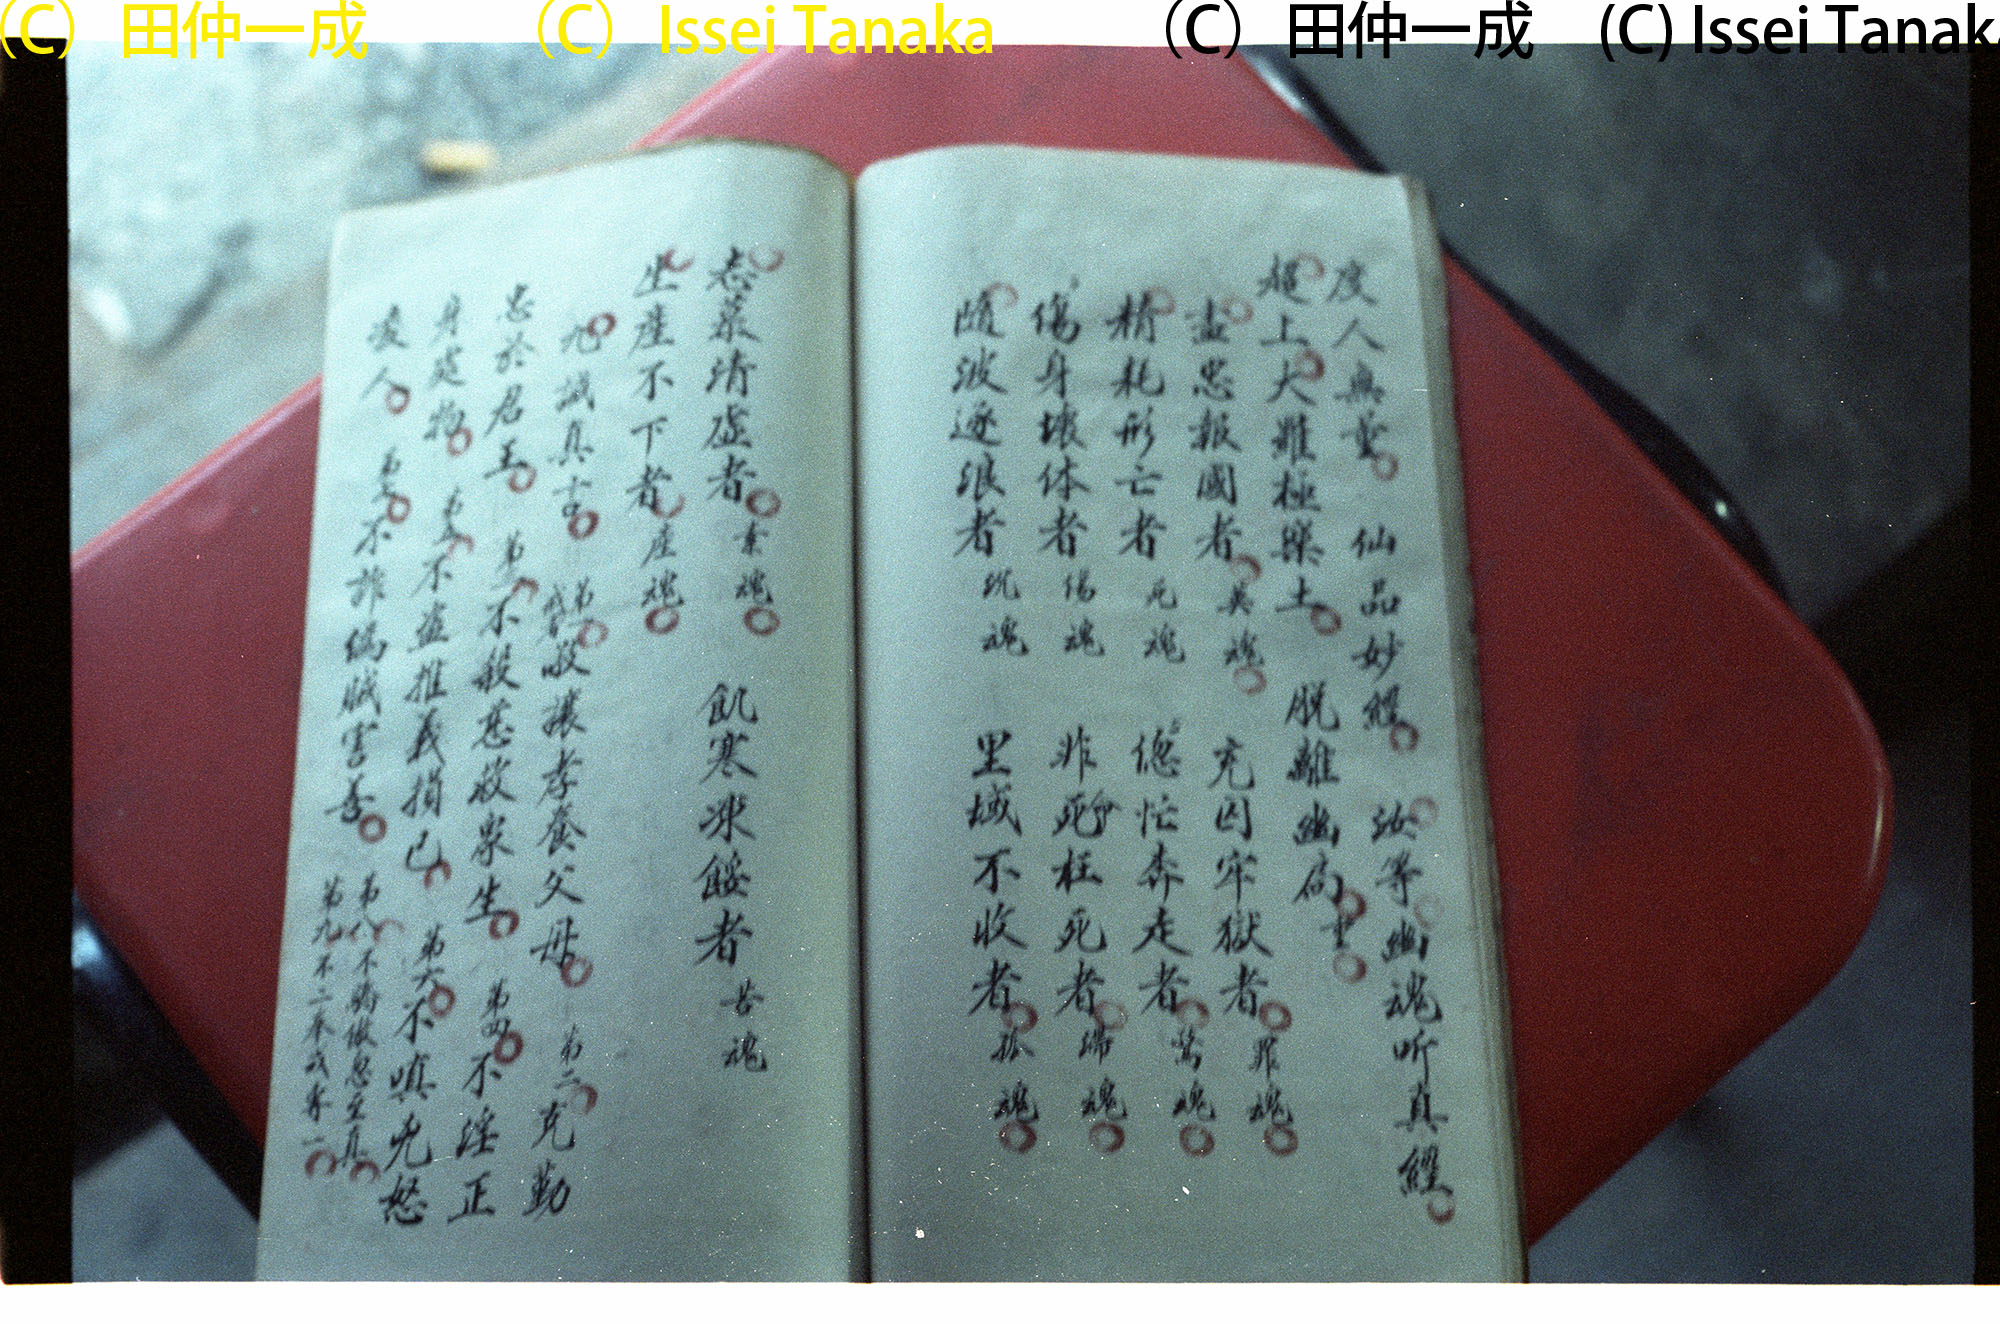 (C) 田仲一成 (C) Issei Tanaka (C) 田仲一成 (C) Issei Tanaka
度人無量 仙品妙經 汝等幽魂听真經
超上大羅極樂土 脱離幽局
盡忠報國者 英魂 充囚牢獄者 罪魂
精耗形亡者 死魂 偬忙奔走者 驚魂
傷身壞体者 傷魂 非死枉死者 滯魂
隨波逐浪者 沉魂 里域不收者 孤魂
志菜清虛者 素魂 飢寒凍餒者 苦魂
生產不下者 產魂
九誡真言 第一 敬讓孝養父母 第二 克勤
忠於君王 第三 不殺慈救眾生 第四 不淫正
身處物 第五 不盗推義損己 第六 不嗔兇怒
凌人 第七 不詐偽賊害善 第八 不驕傲忽至真
第九 不二奉戒專一